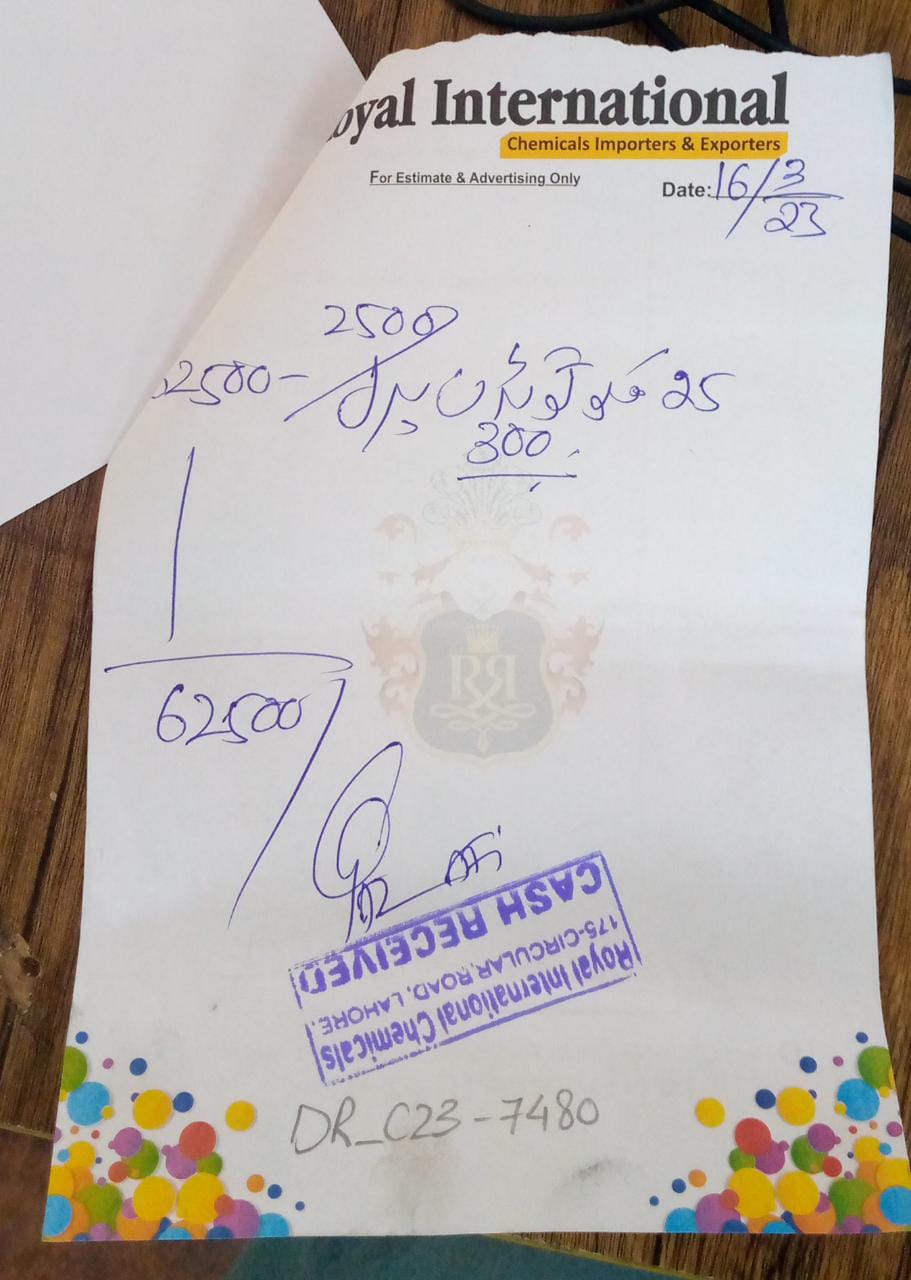 oyal International
Chemicals Importers & Exporters
For Estimate & Advertising Only
Date: 16/3/23
2500
2500- 25
300
62500/
Royal International Chemicals
175-CIRCULAR, ROAD, LAHORE.
CASH RECEIVED
DR_C23-7480